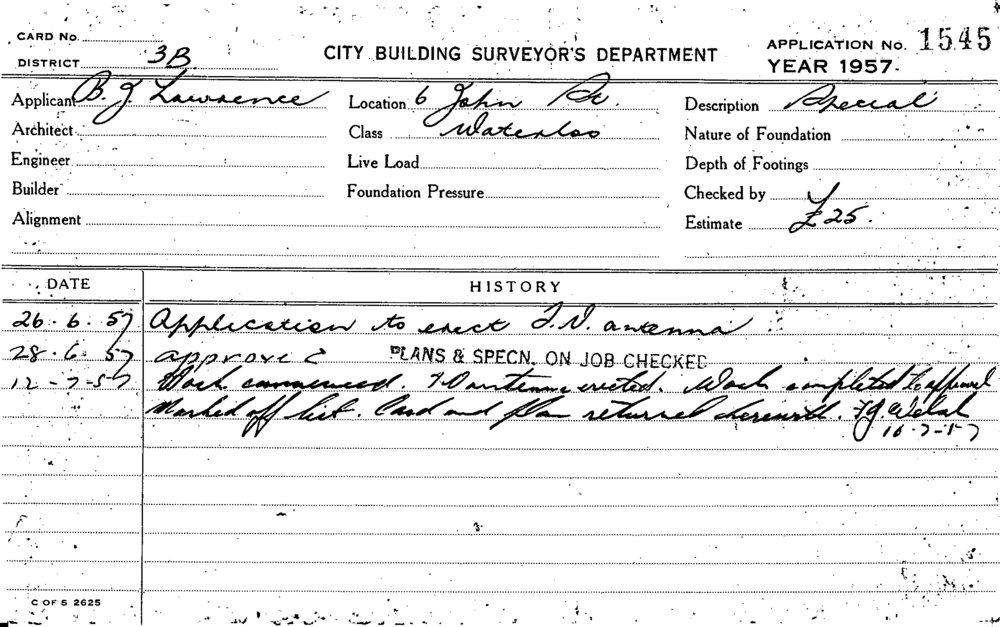 CARD No.
DISTRICT 3B
CITY BUILDING SURVEYOR'S DEPARTMENT
APPLICATION No. 1545
YEAR 1957.
Applicant B. J. Lawrence
Location 6 John St.
Description Special
Architect
Class Waterloo
Nature of Foundation
Engineer
Live Load
Depth of Footings
Builder
Foundation Pressure
Checked by
Alignment
Estimate £25.
DATE
HISTORY
26.6.57 Application to erect T.V. antenna
28.6.57 approved PLANS & SPECN. ON JOB CHECKED
12-7-57 Work commenced. TV antenna erected. Work completed to approval
Marked off list. Card and plan returned herewith. F.J. Welsh
16-7-57
C OF S 2625